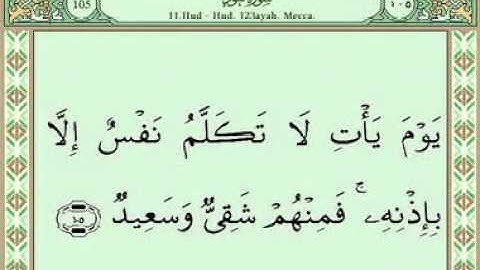 105 سورة هود ١٠٥
11.Hud - Hud. 123ayah. Mecca.
يَوْمَ يَأْتِ لَا تَكَلَّمُ نَفْسٌ إِلَّا
بِإِذْنِهِۦ ۚ فَمِنْهُمْ شَقِىٌّ وَسَعِيدٌ ١٠٥